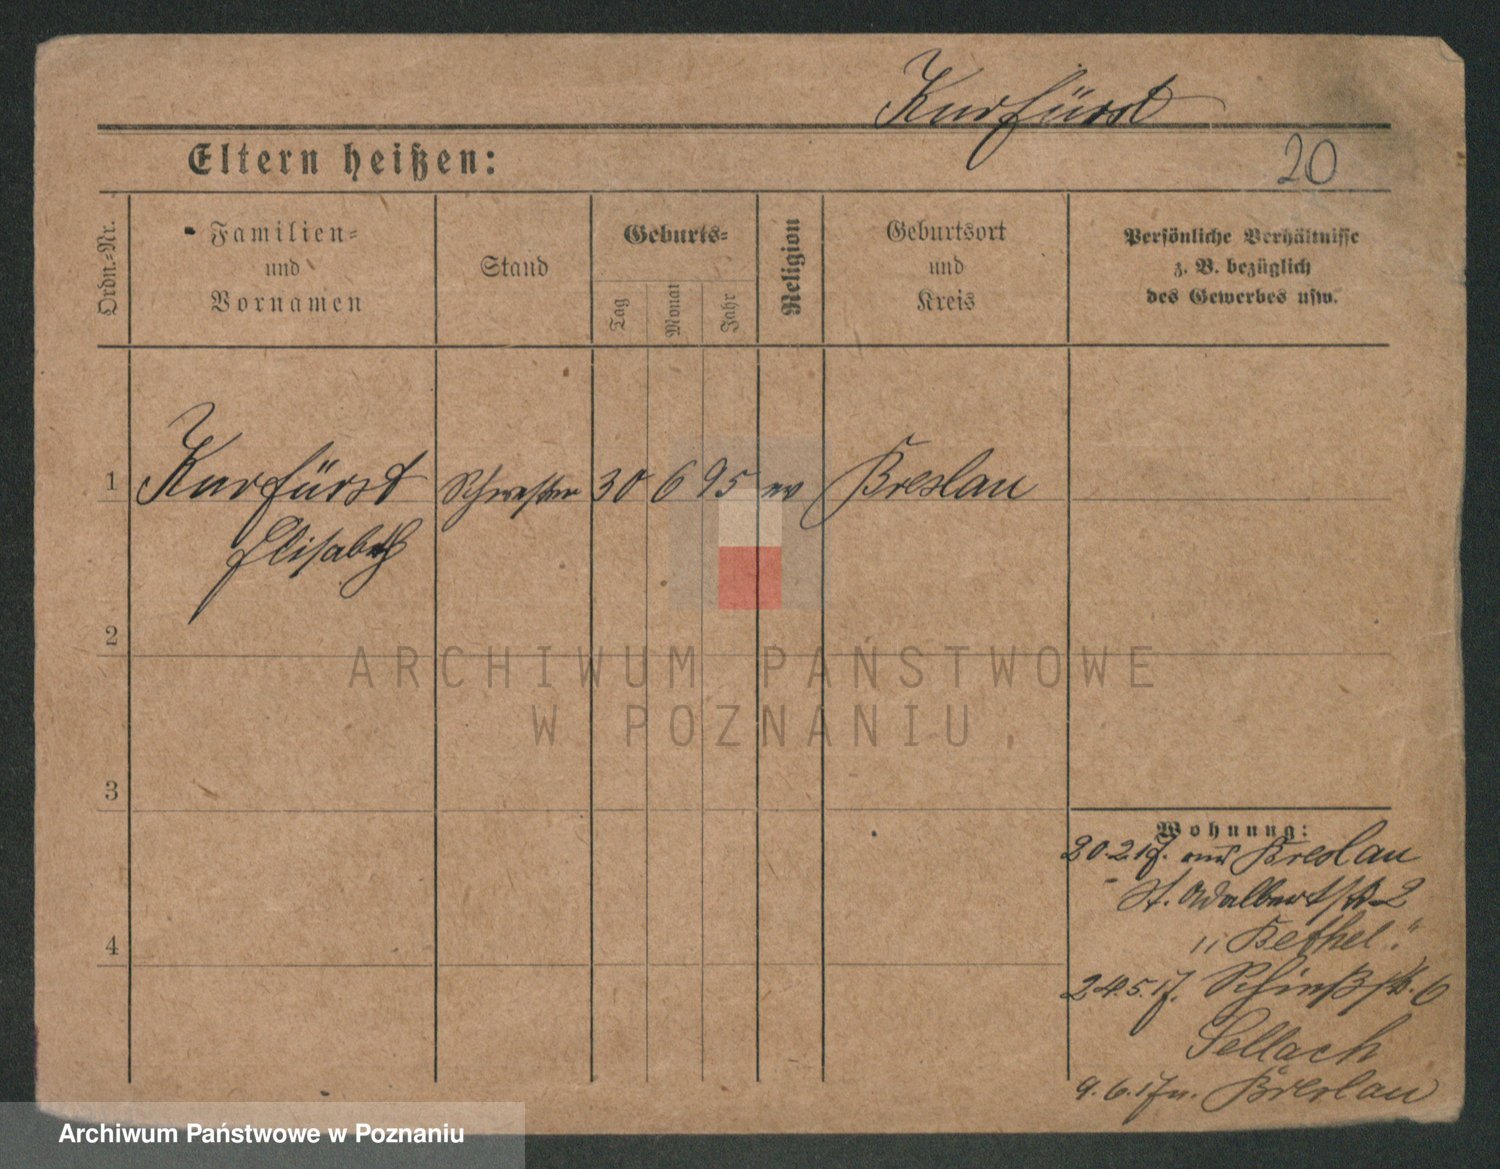 Kurfürst
Eltern heißen:
20
Ordn.-Nr.
Familien-
und
Vornamen
Stand
Geburts-
Tag
Monat
Jahr
Religion
Geburtsort
und
Kreis
Persönliche Verhältnisse
z. B. bezüglich
des Gewerbes usw.
1 Kurfürst Schwester 30 6 95 ev Breslau
Elisabeth
2
3
4
Wohnung:
20.2.17. aus Breslau
St. Adalbertstr. 2
"Bethel."
24.5.17. Schießstr. 6
Sellach
9.6.17 n. Breslau
ARCHIWUM PAŃSTWOWE
W POZNANIU
Archiwum Państwowe w Poznaniu